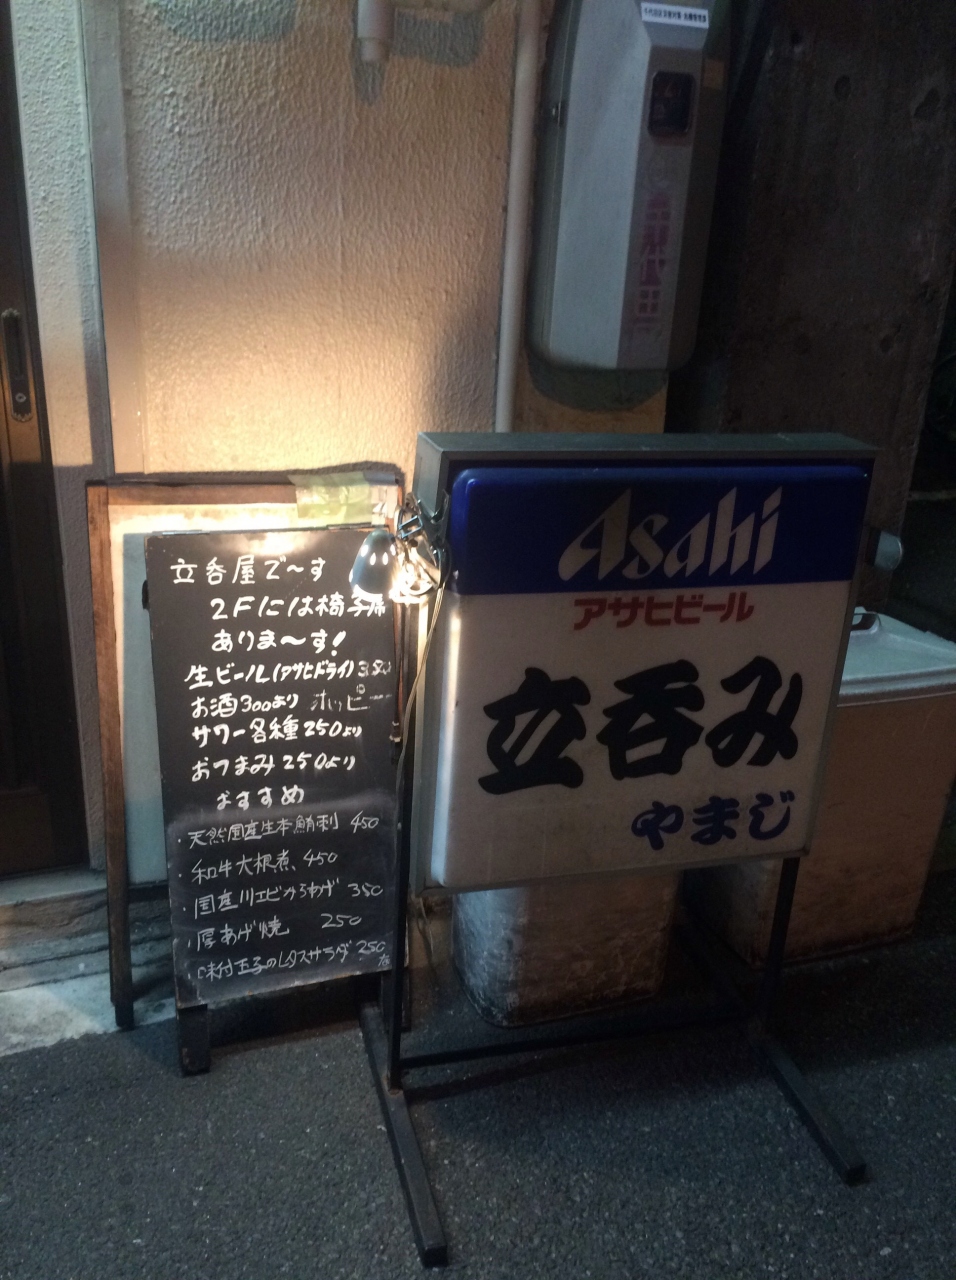 立呑屋で〜す
2Fには椅子席
ありま〜す!
生ビール(アサヒドライ)350
お酒300より ホッピー
サワー各種250より
おつまみ250より
おすすめ
・天然国産生本鮪刺 450
・和牛大根煮 450
・国産川エビから揚げ 350
・厚あげ焼 250
・味付玉子のレタスサラダ 250
Asahi
アサヒビール
立呑み
やまじ